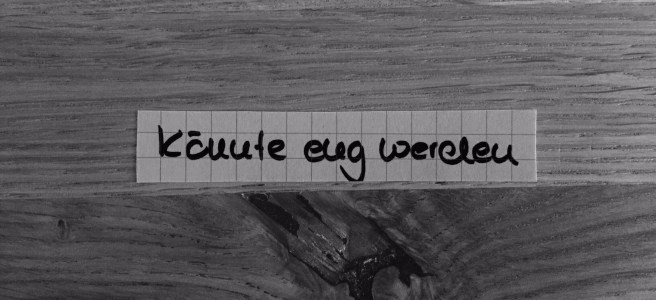 Könnte eng werden